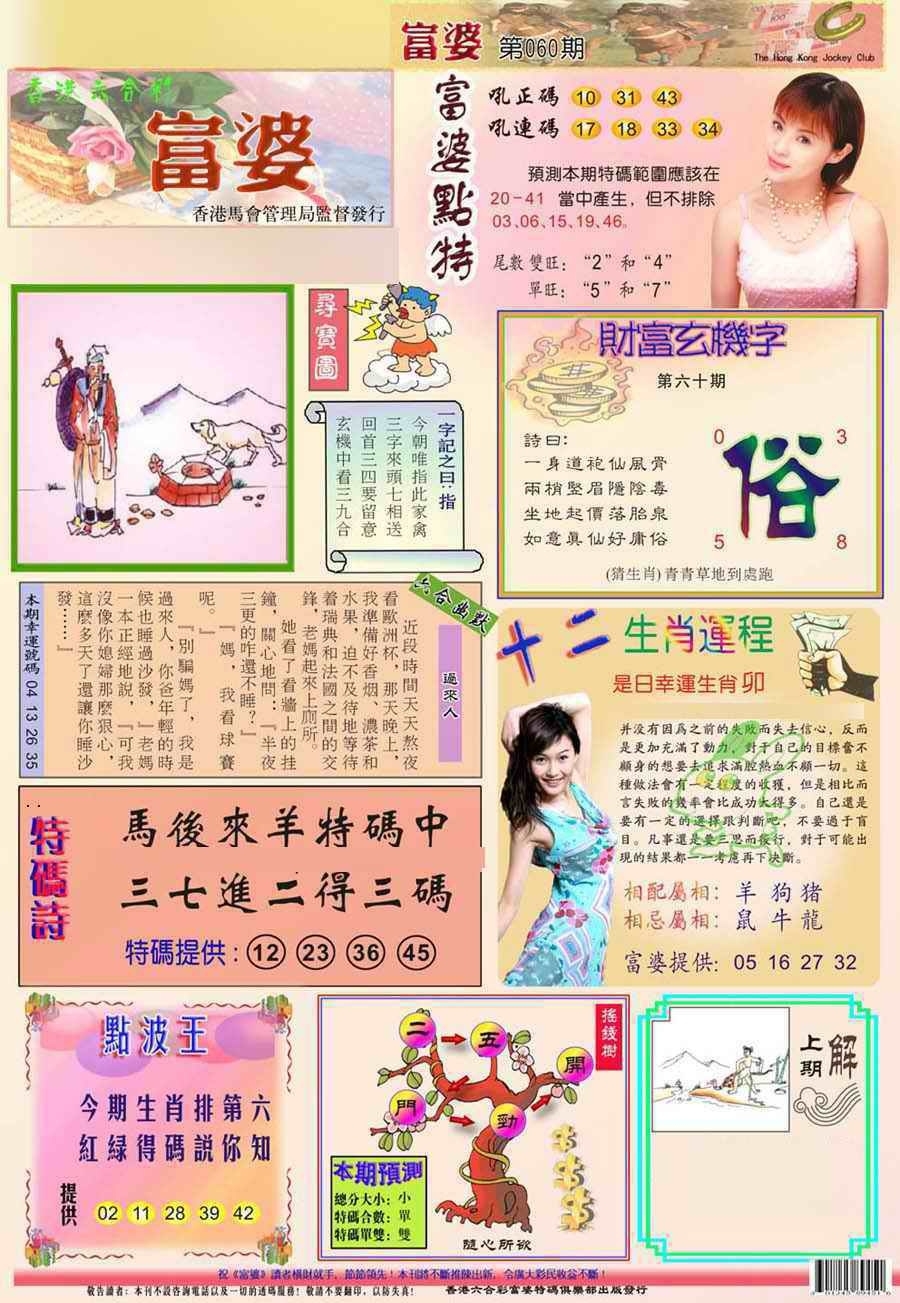 富婆 第060期
The Hong Kong Jockey Club
香港六合彩
富婆
香港馬會管理局監督發行
富婆點特
吼正碼 10 31 43
吼連碼 17 18 33 34
預測本期特碼範圍應該在
20-41 當中產生，但不排除
03、06、15、19、46。
尾數雙旺：“2”和“4”
單旺：“5”和“7”
尋寶圖
一字記之曰：指
今朝唯指此家禽
三字來頭七相送
回首三四要留意
玄機中看三九合
財富玄機字
第六十期
詩曰：
一身道袍仙風骨
兩梢堅眉隱陰毒
坐地起價落胎泉
如意真仙好庸俗
0 3
俗
5 8
(猜生肖)青青草地到處跑
六合幽默
過來人
近段時間天天熬夜
看歐洲杯，那天晚上，
我準備好香烟、濃茶和
水果，迫不及待地等待
着瑞典和法國之間的交
鋒，老媽起來上廁所。
她看了看牆上的挂
鐘，關心地問：『半夜
三更的咋還不睡？』
『媽，我看球賽
呢。』
『別騙媽了，我是
過來人，你爸年輕的時
候也睡過沙發，』老媽
一本正經地說，『可我
沒像你媳婦那麼狠心，
這麼多天了還讓你睡沙
發……』
本期幸運號碼 04 13 26 35
十二生肖運程
是日幸運生肖 卯
并没有因爲之前的失敗而失去信心，反而
是更加充滿了動力，對于自己的目標奮不
顧身的想要去追求滿腔熱血不顧一切。這
種做法會有一定程度的收獲，但是相比而
言失敗的幾率會比成功大得多。自己還是
要有一定的選擇跟判斷吧，不要過于盲
目。凡事還是要三思而後行，對于可能出
現的結果都一一考慮再下决斷。
相配屬相：羊 狗 豬
相忌屬相：鼠 牛 龍
富婆提供：05 16 27 32
特碼詩
馬後來羊特碼中
三七進二得三碼
特碼提供：12 23 36 45
點波王
今期生肖排第六
紅緑得碼説你知
提供 02 11 28 39 42
搖錢樹
二 五 開
門 勁
本期預測
總分大小：小
特碼合數：單
特碼單雙：雙
隨心所欲
上期解
祝《富婆》讀者橫財就手，節節領先！本刊將不斷推陳出新，令廣大彩民收益不斷！
敬告讀者：本刊不設咨詢電話以及一切的透碼服務！敬請不要翻印，以防失真！
香港六合彩富婆特碼俱樂部出版發行